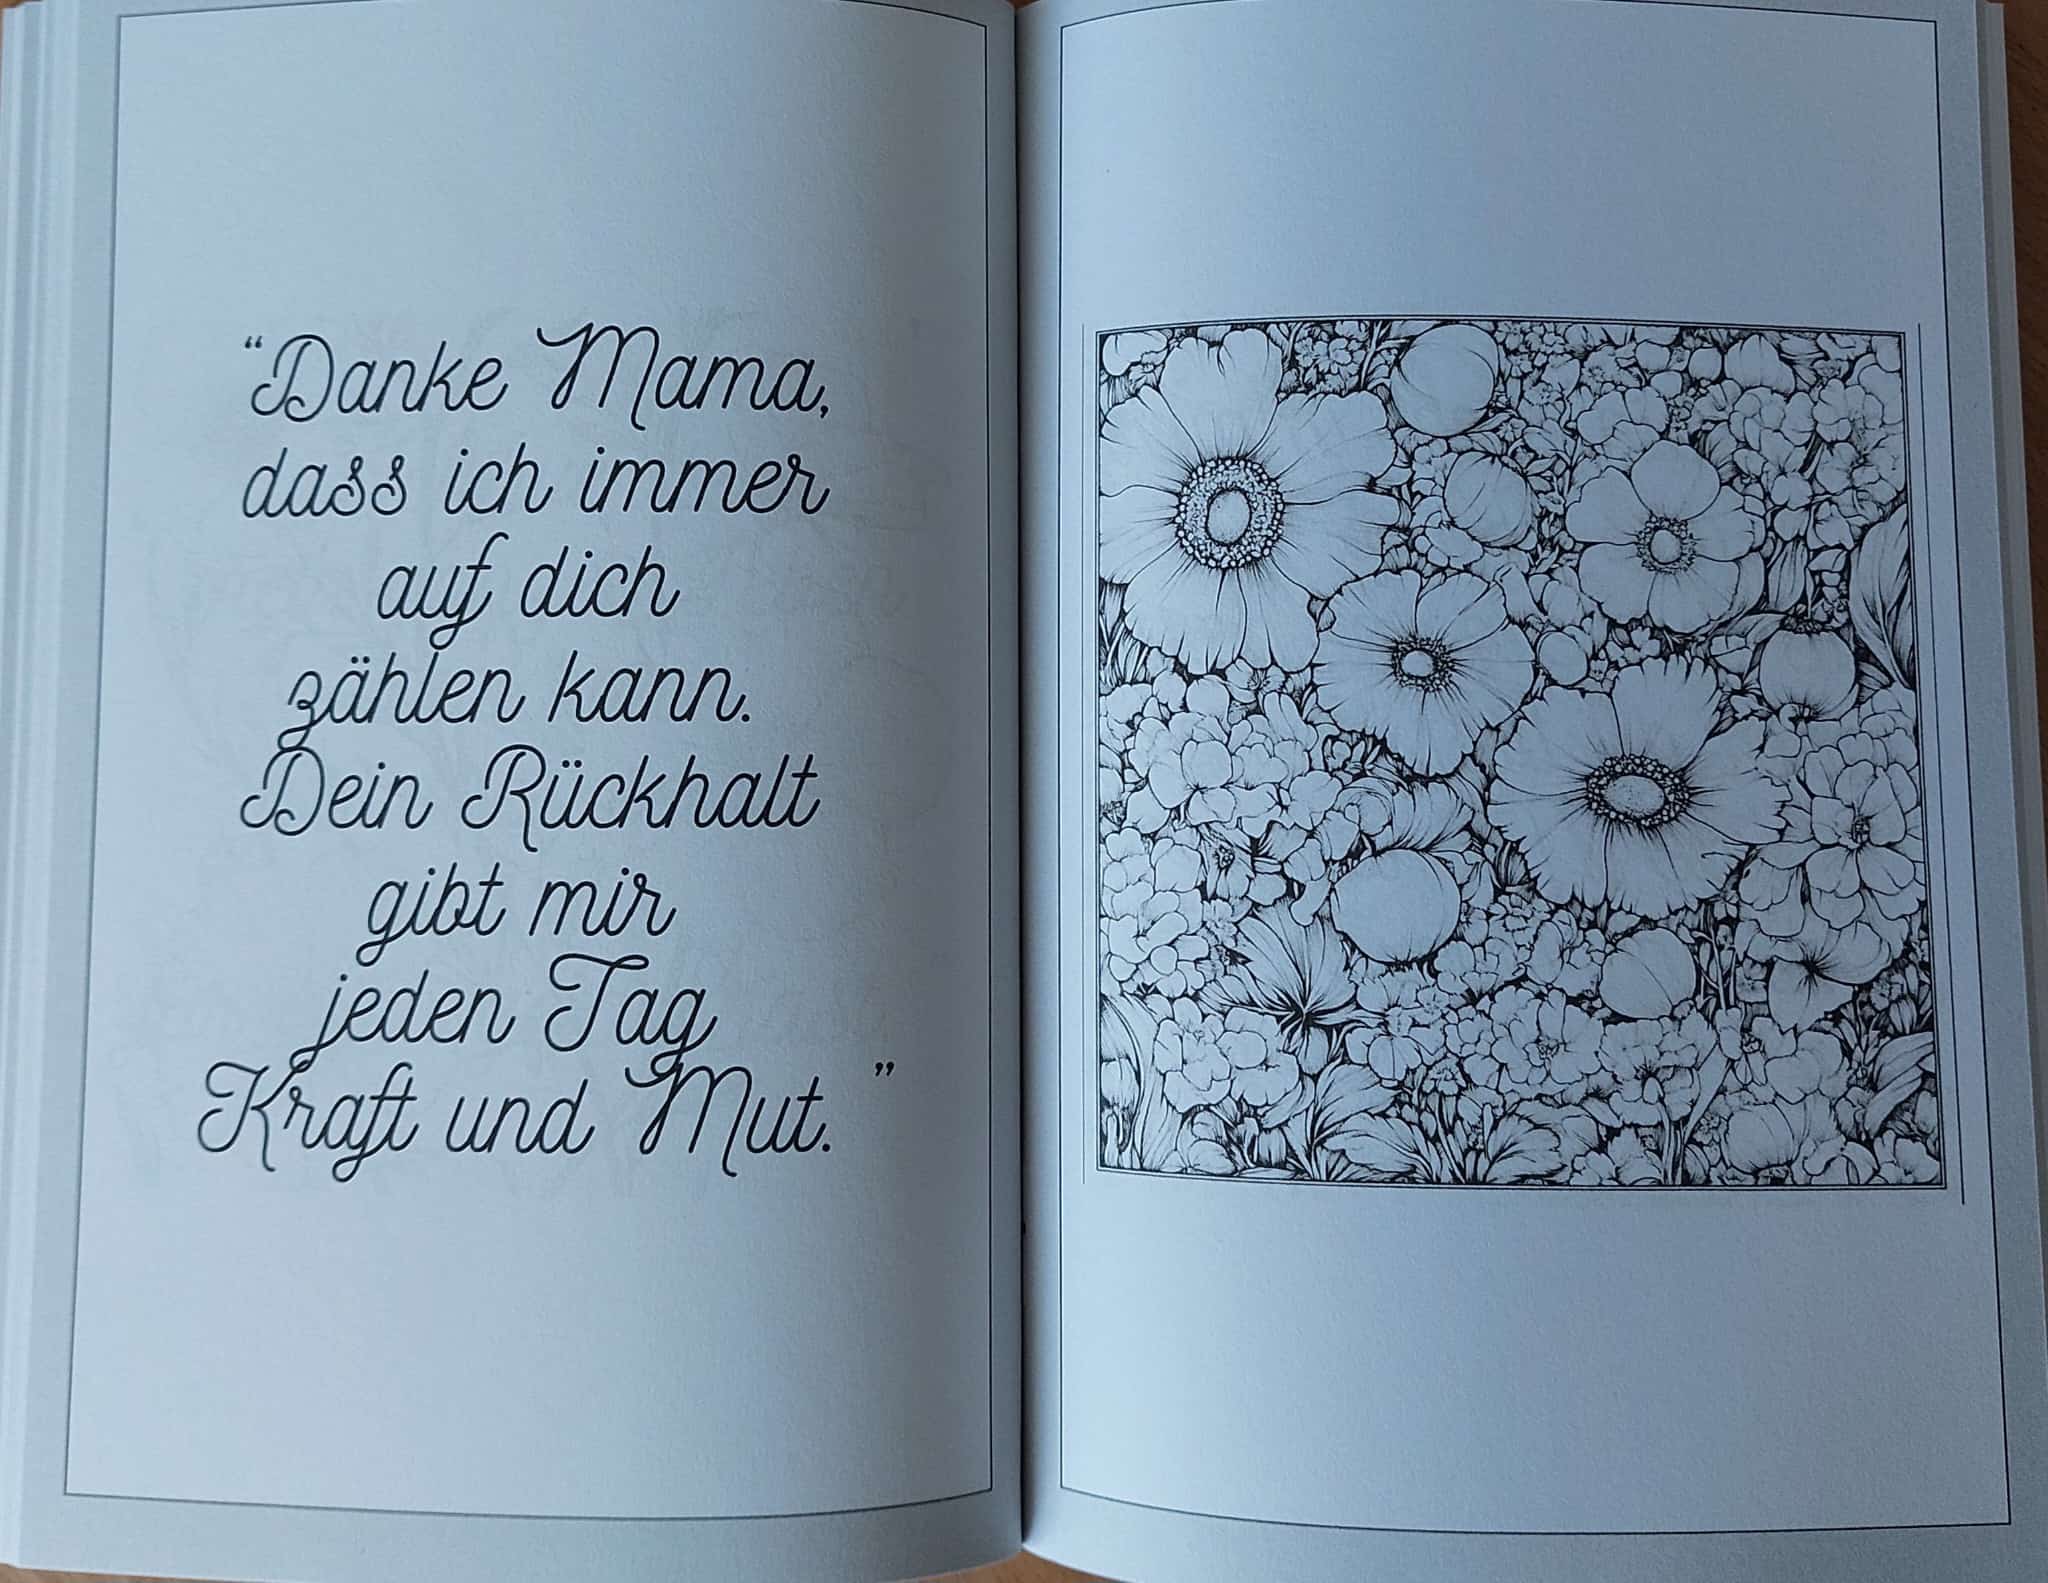 “Danke Mama,
dass ich immer
auf dich
zählen kann.
Dein Rückhalt
gibt mir
jeden Tag
Kraft und Mut. ”